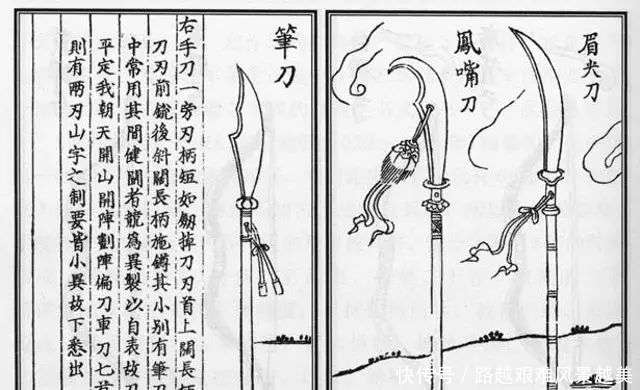 眉尖刀
鳳嘴刀
筆刀
右手刀一旁刃柄短如劒掉刀刃首上闊長
刀刃前銳後斜闊長柄施鐏其小別有筆刀
中常用其間健鬬者競為異製以自表故刀
平定我朝天開山開陣劃陣偏刀車刀七
則有兩刃山字之制要皆小異故下悉出
快传号／路越艰难风景越美